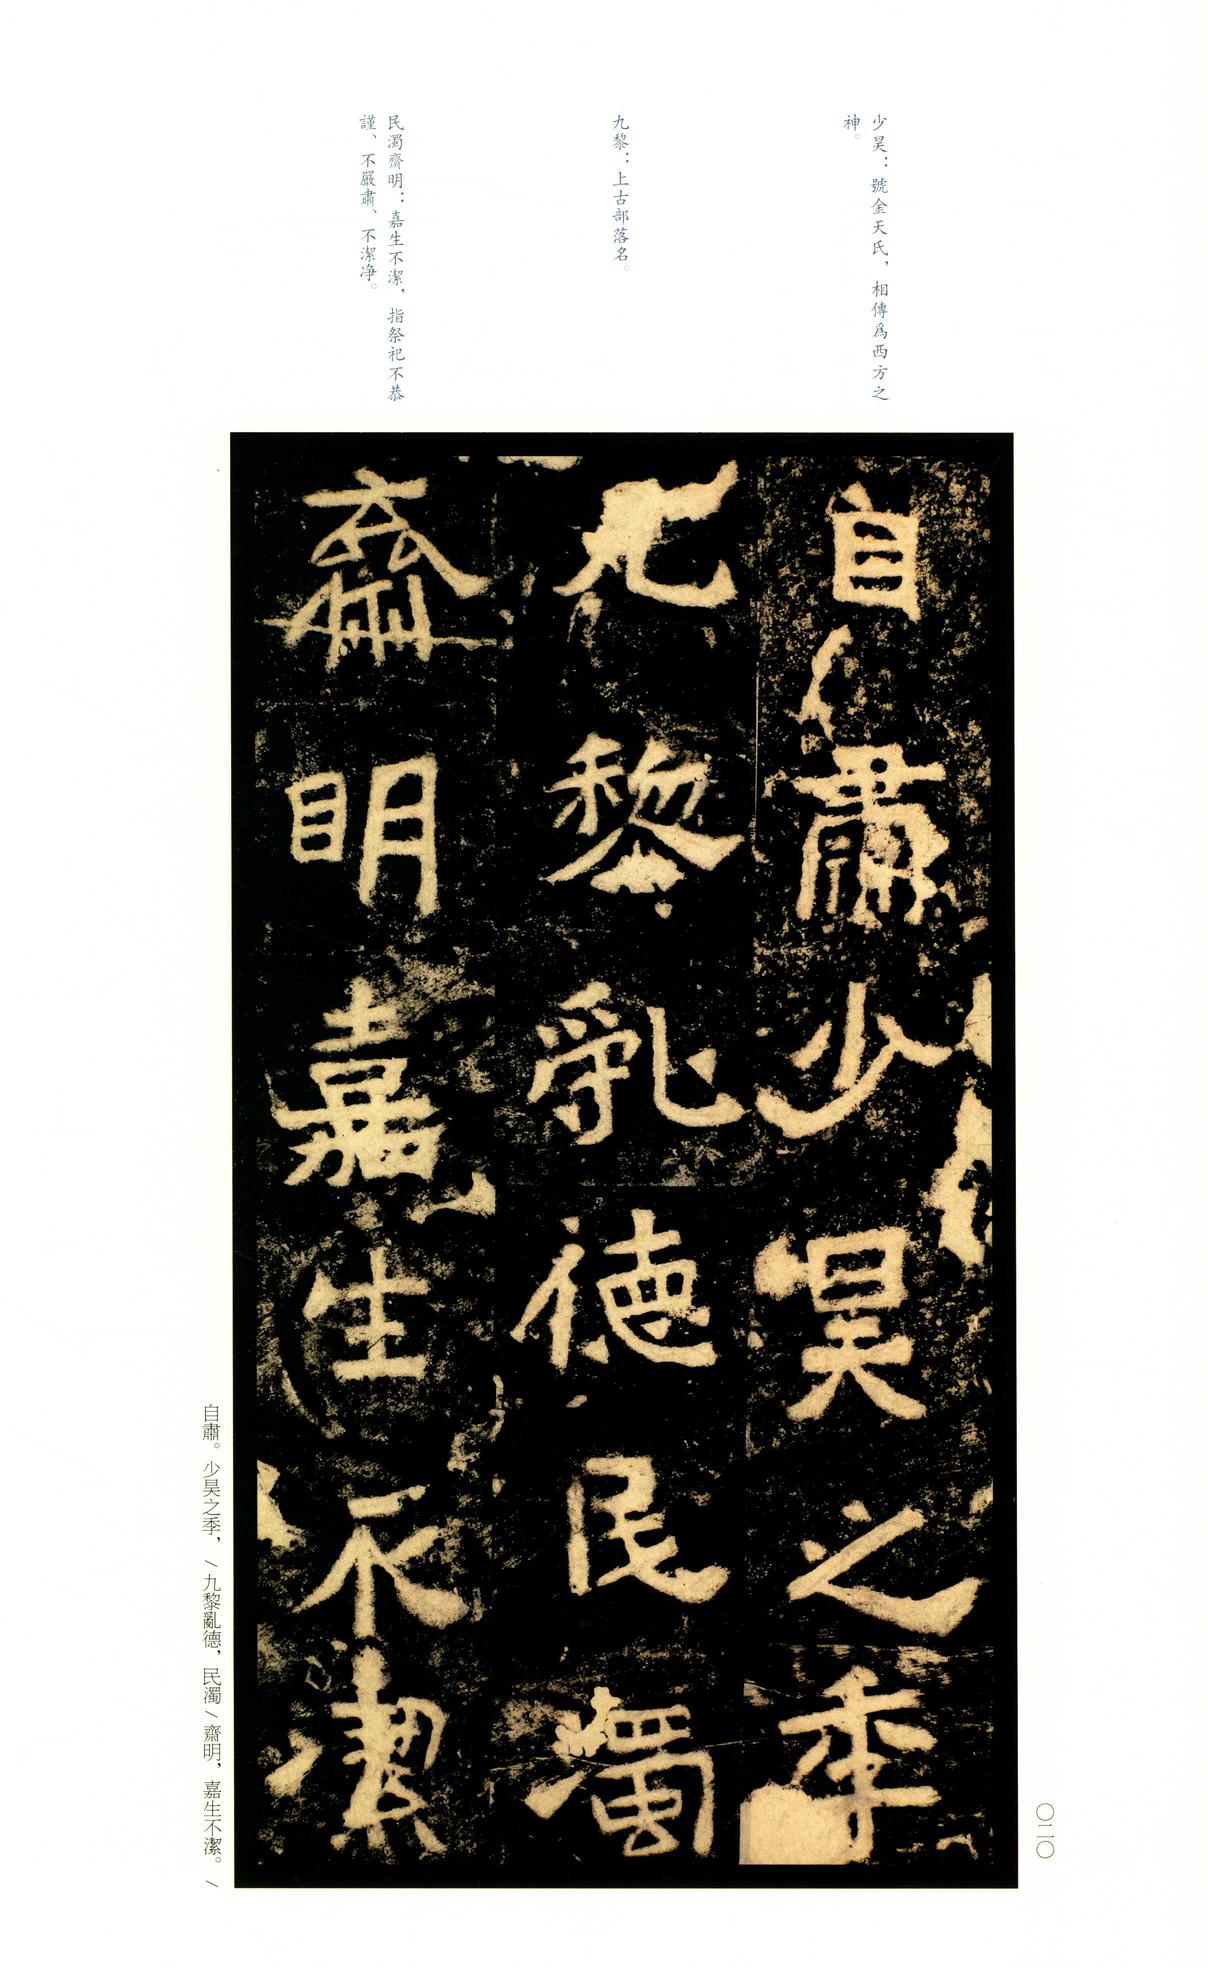 少昊：號金天氏，相傳爲西方之
神。
九黎：上古部落名。
民濁齋明：嘉生不潔，指祭祀不恭
謹、不嚴肅、不潔净。
自肅少昊之季
九黎亂德民濁
齋明嘉生不潔
自肅。少昊之季，/九黎亂德，民濁/齋明，嘉生不潔。/
〇二〇